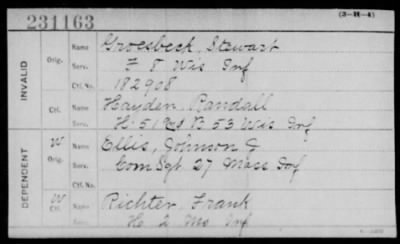 231163
(3-H-4)
INVALID
Orig. Name Groesbeck, Stewart
Serv. F 8 Wis Inf
Ctf. No. 182908
Ctf. Name Hayden, Randall
Serv. H. 51 & B 53 Wis Inf
DEPENDENT
W Orig. Name Ellis, Johnson J
Serv. Com Sgt 27 Mass Inf
Ctf. No.
W Ctf. Name Richter, Frank
Serv. H 2 Mo Inf